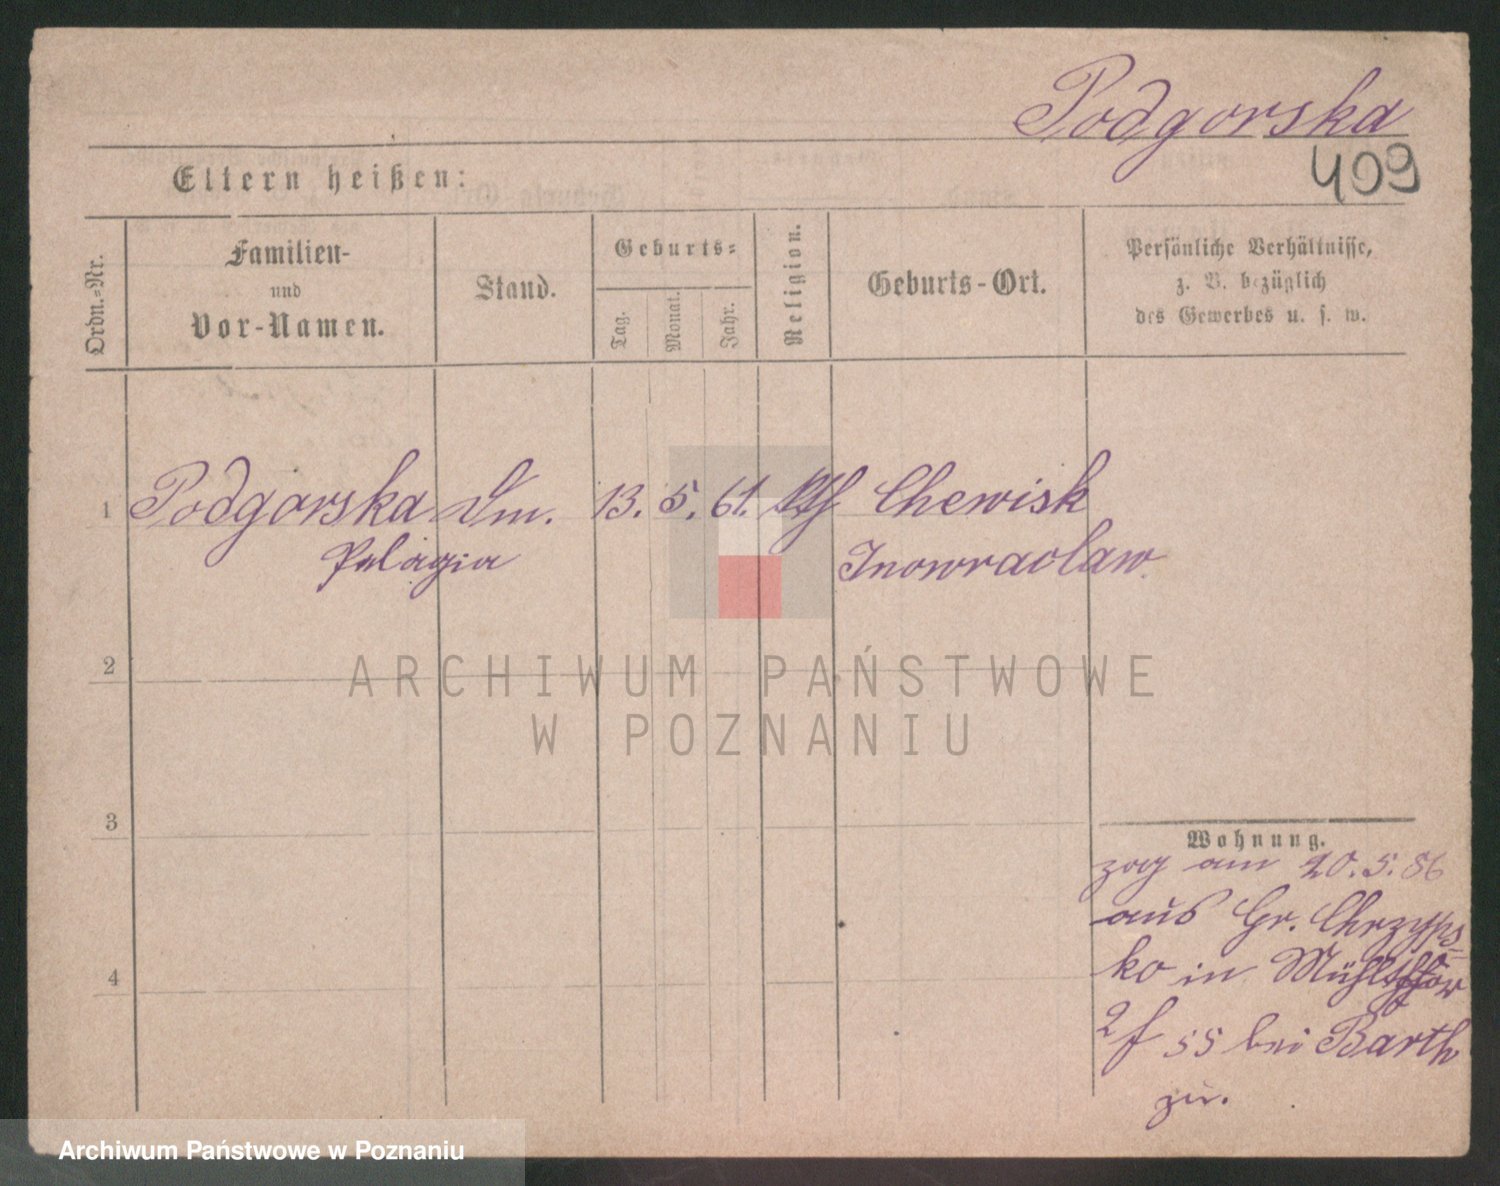 Podgorska
409
Eltern heißen:
Ordn.-Nr.
Familien-
und
Vor-Namen.
Stand.
Geburts-
Tag.
Monat.
Jahr.
Religion.
Geburts-Ort.
Persönliche Verhältnisse,
z. B. bezüglich
des Gewerbes u. s. w.
1 Podgorska Dm. 13. 5. 61. kth Chewisk
Pelagia Inowraclaw.
2
3
4
Wohnung.
zog am 20.5.86
aus Gr. Chrzyps-
ko in
55 bei Barth
zu.
ARCHIWUM PAŃSTWOWE
W POZNANIU
Archiwum Państwowe w Poznaniu